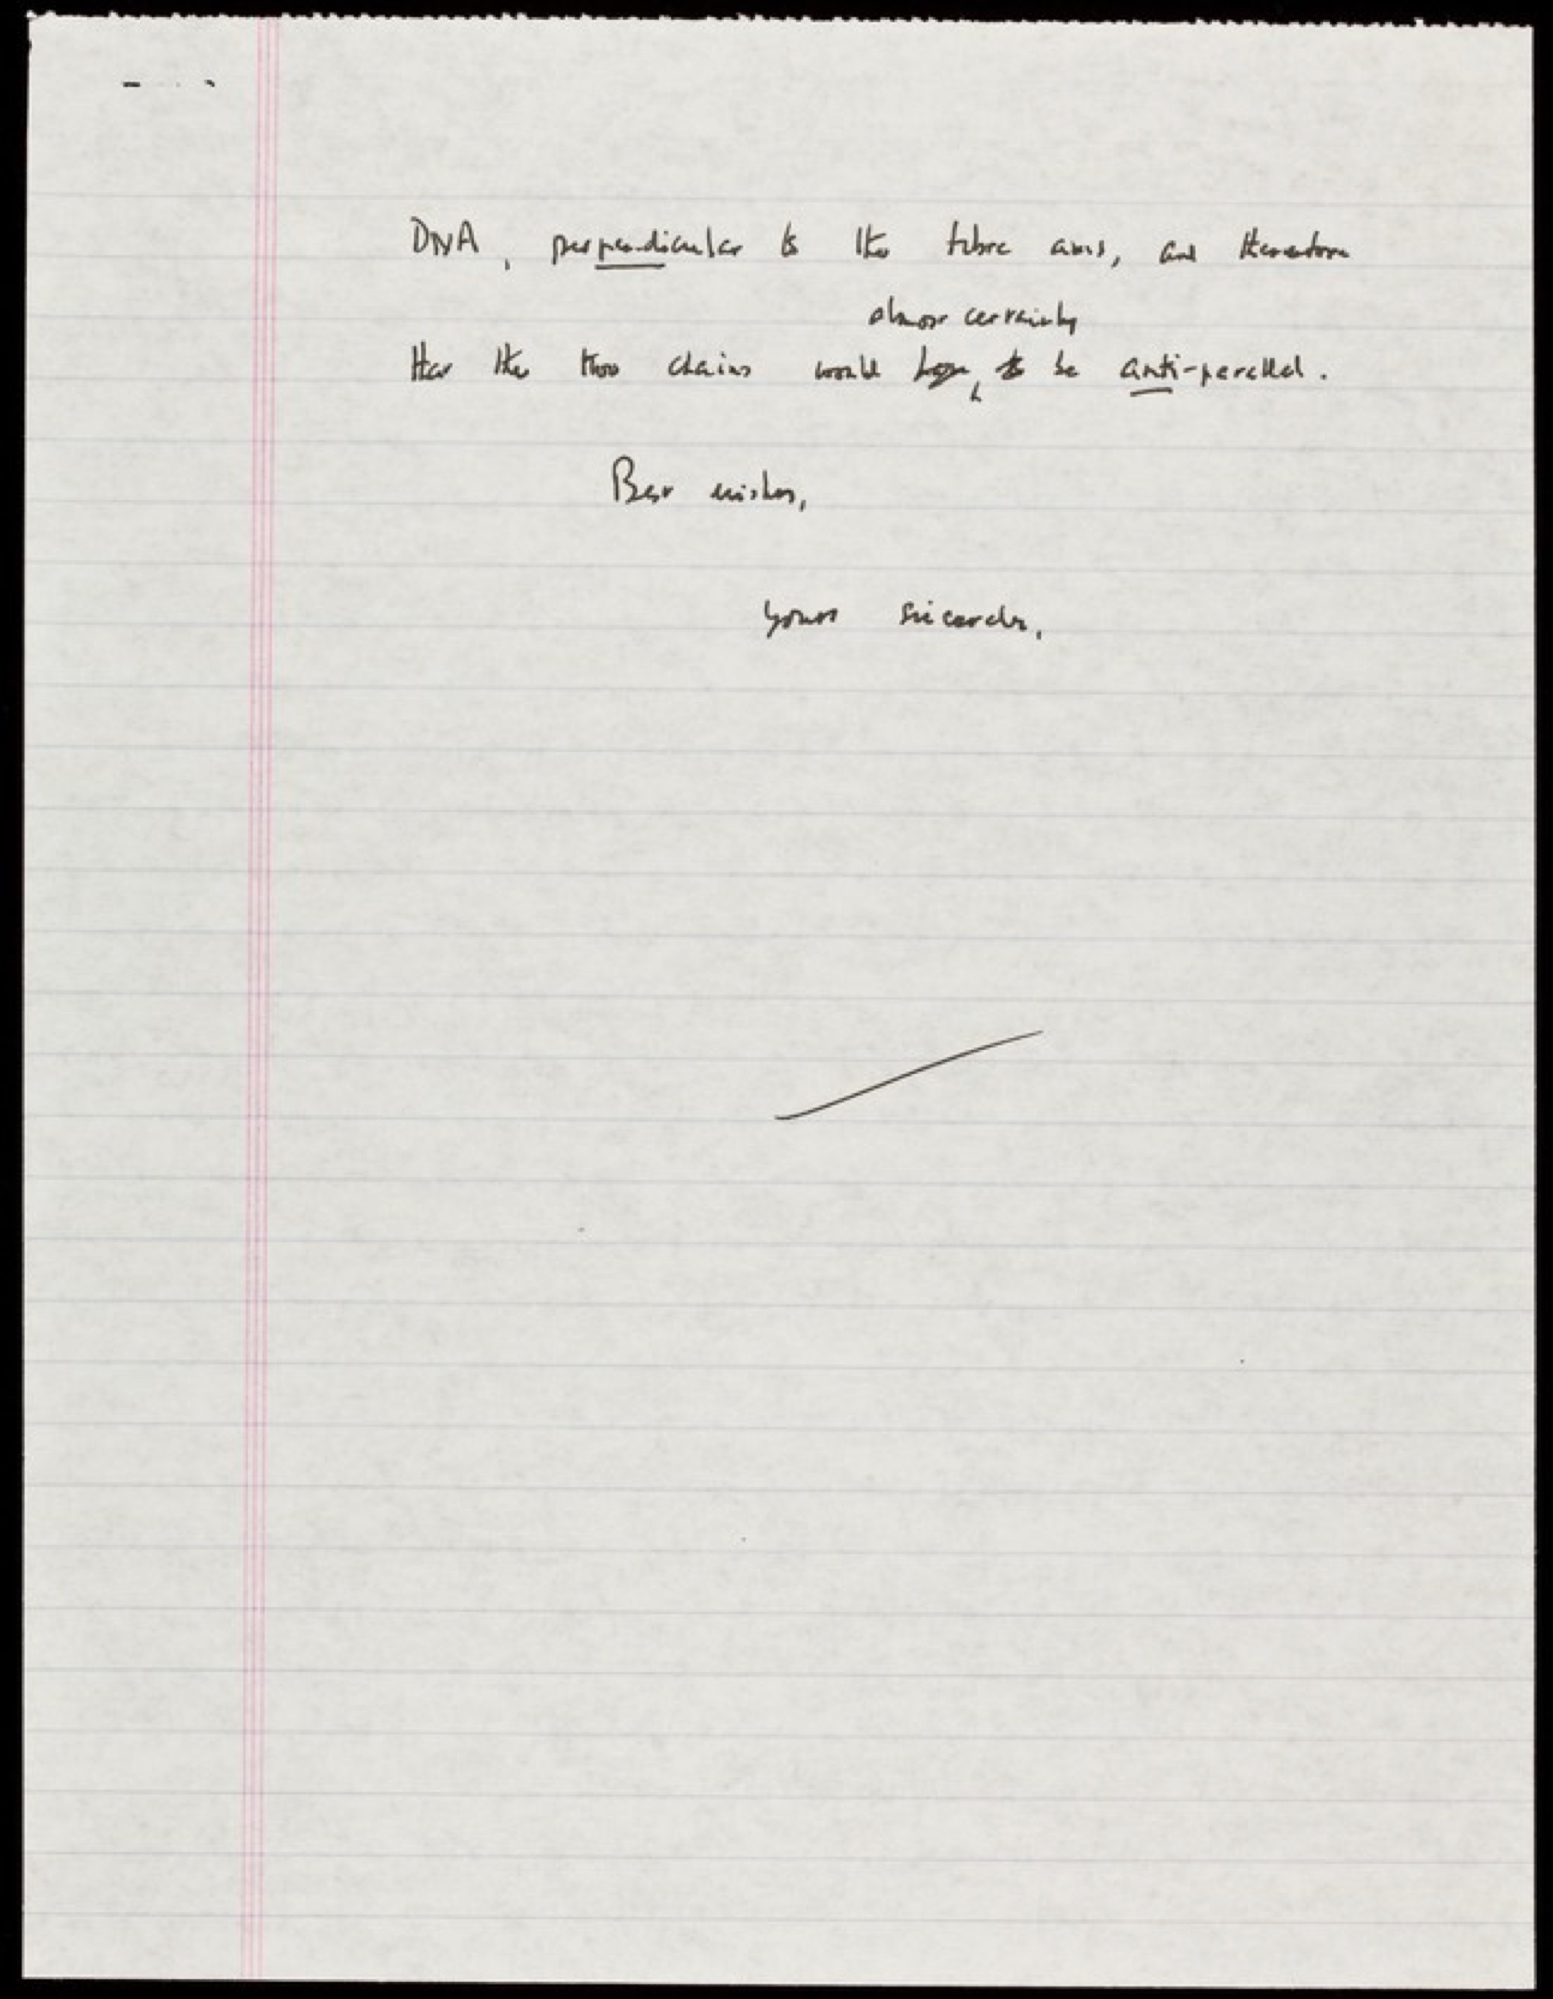 DNA, perpendicular to the fibre axis, and therefore
almost certainly
that the two chains would have to be anti-parallel.
Best wishes,
Yours sincerely,